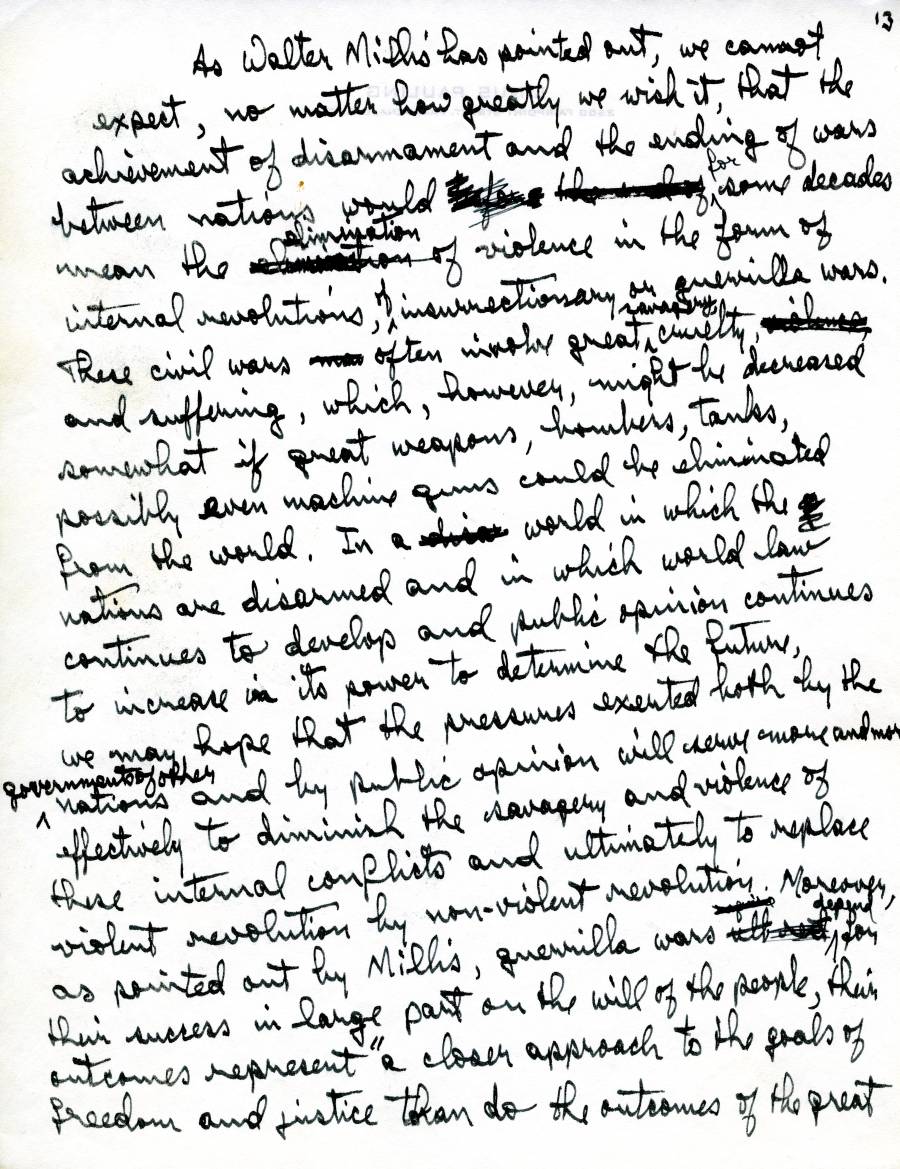 13
As Walter Millis has pointed out, we cannot
expect, no matter how greatly we wish it, that the
achievement of disarmament and the ending of wars
between nations would for some decades
mean the elimination of violence in the form of
internal revolutions, of insurrectionary or guerrilla wars.
These civil wars often involve great savagery, cruelty,
and suffering, which, however, might be decreased
somewhat if great weapons, bombers, tanks,
possibly even machine guns could be eliminated
from the world. In a world in which the
nations are disarmed and in which world law
continues to develop and public opinion continues
to increase in its power to determine the future,
we may hope that the pressures exerted both by the
governments of other nations and by public opinion will serve more and more
effectively to diminish the savagery and violence of
these internal conflicts and ultimately to replace
violent revolution by non-violent revolution. Moreover,
as pointed out by Millis, guerrilla wars depend for
their success in large part on the will of the people, their
outcomes represent "a closer approach to the goals of
freedom and justice than do the outcomes of the great